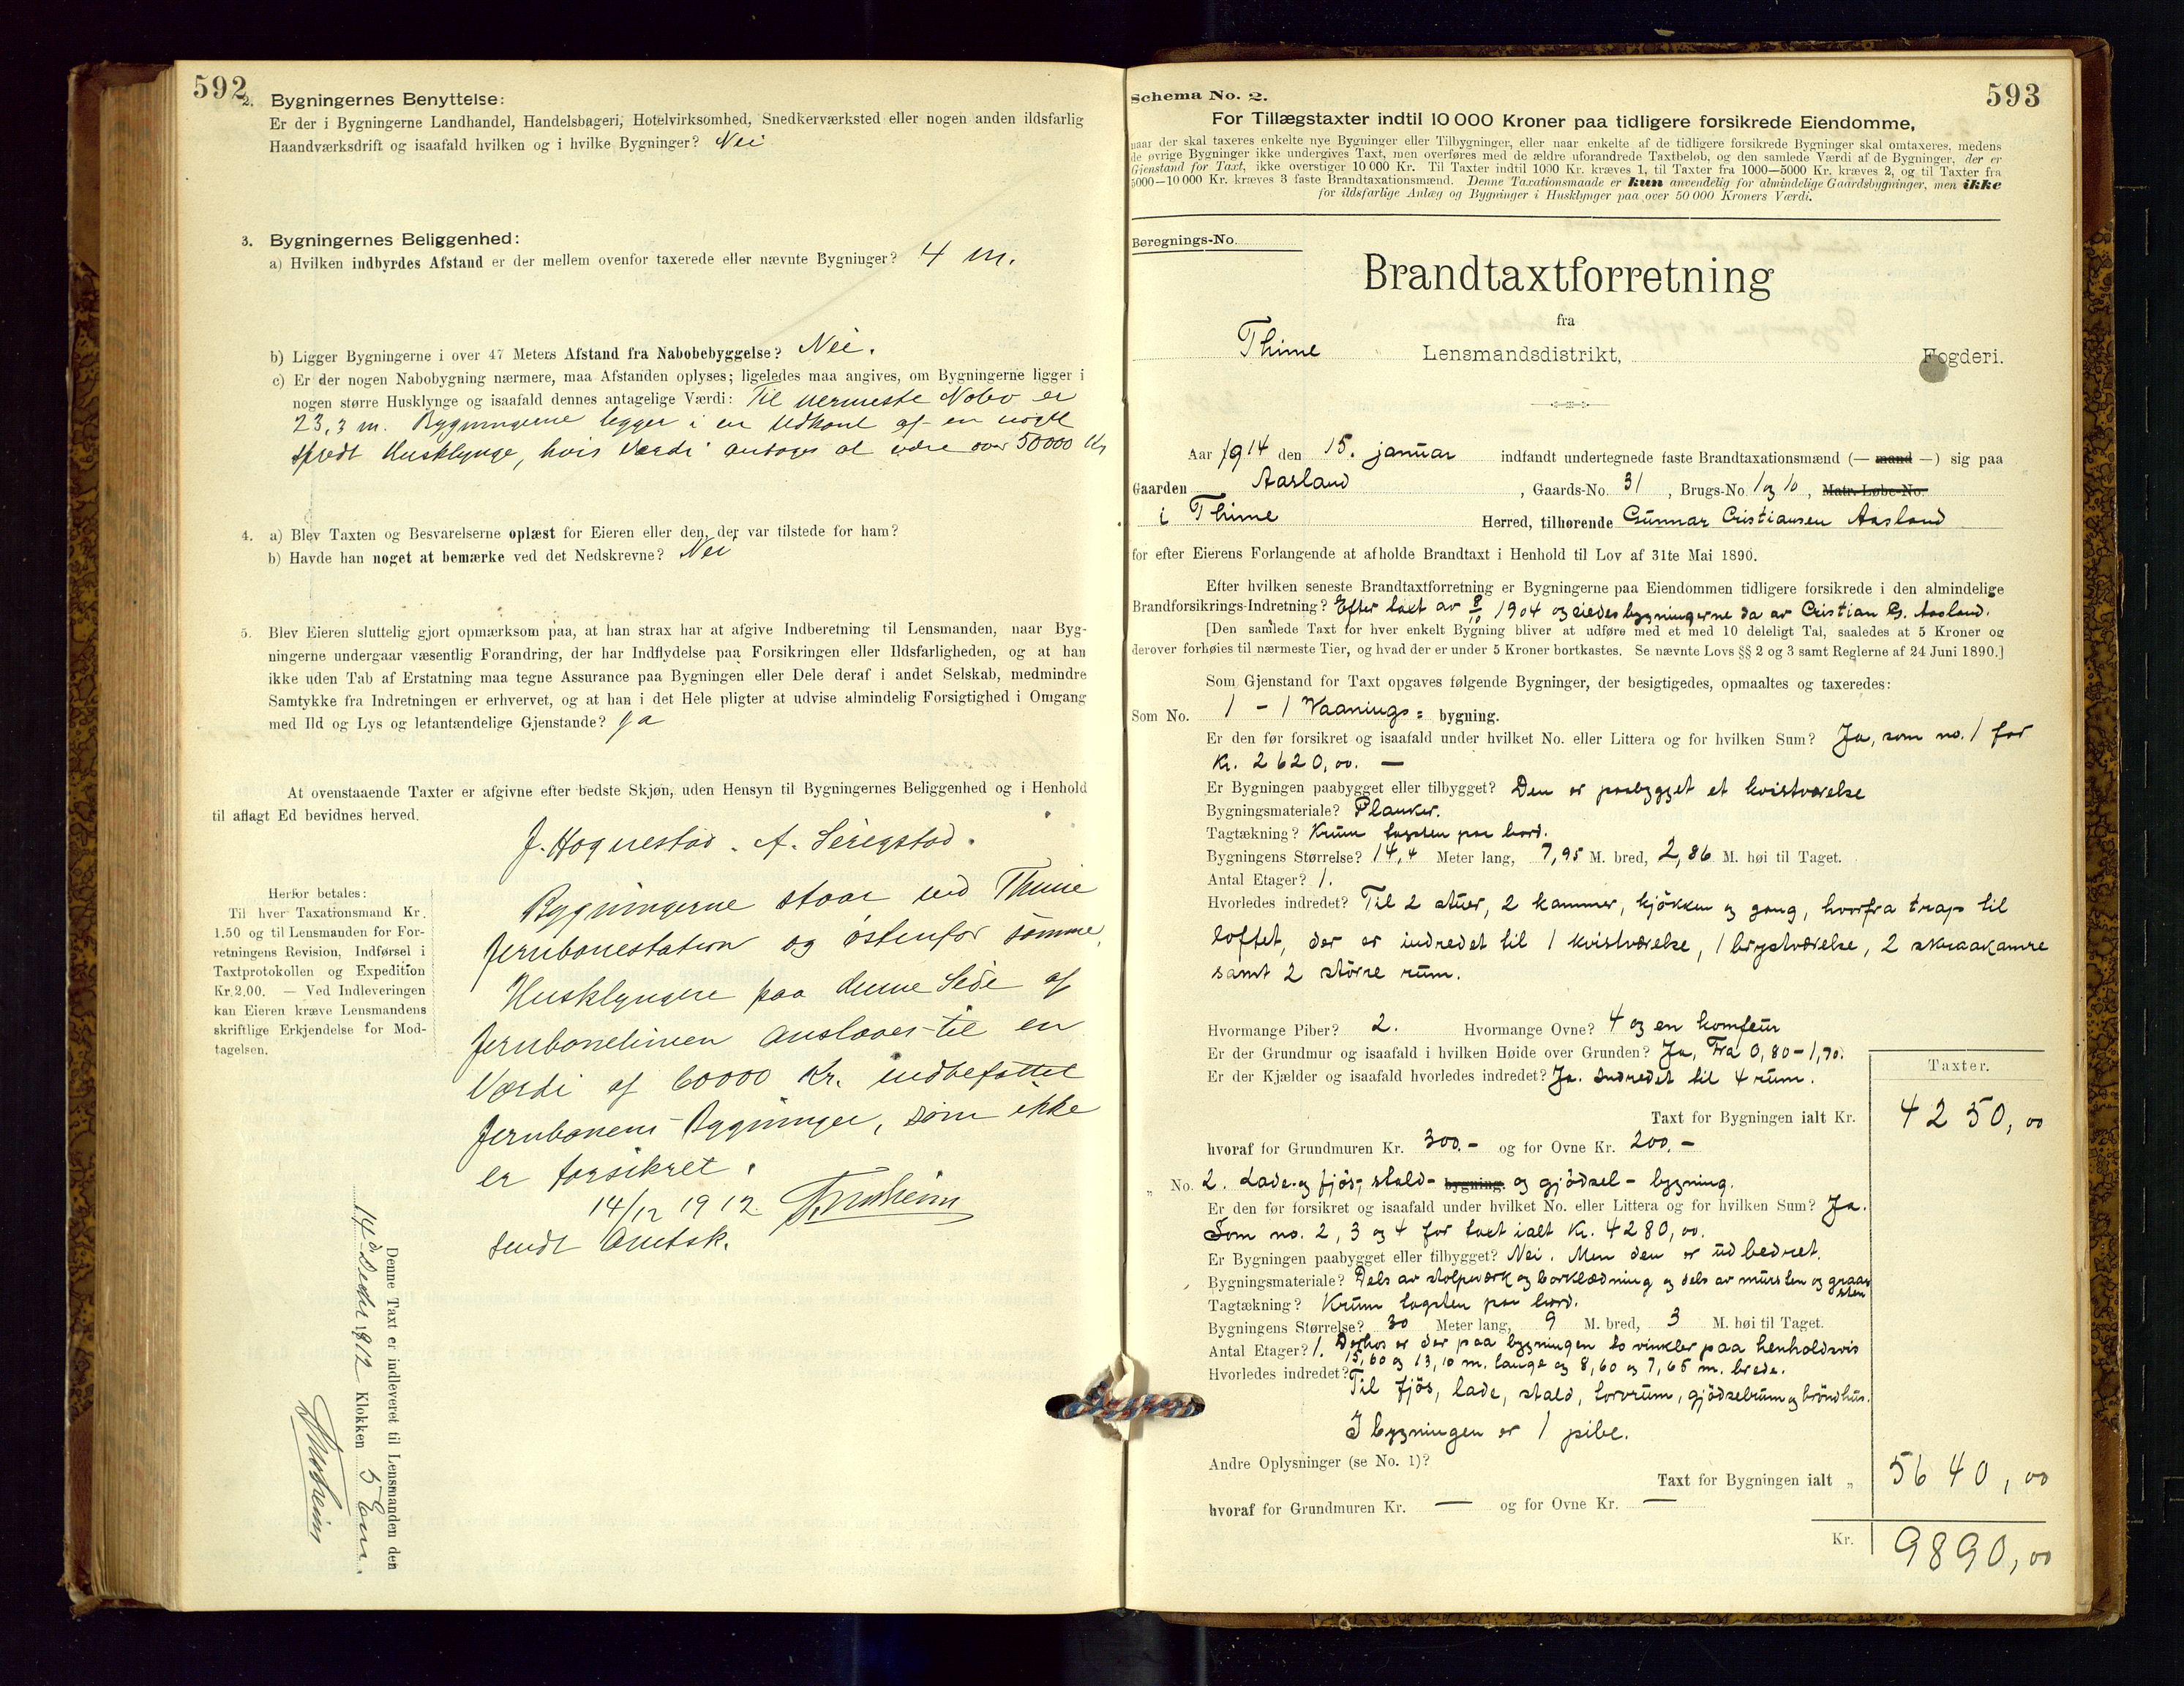 592
2. Bygningernes Benyttelse:
Er der i Bygningerne Landhandel, Handelsbageri, Hotelvirksomhed, Snedkerværksted eller nogen anden ildsfarlig
Haandværksdrift og isaafald hvilken og i hvilke Bygninger? Nei
3. Bygningernes Beliggenhed:
a) Hvilken indbyrdes Afstand er der mellem ovenfor taxerede eller nævnte Bygninger? 4 m.
b) Ligger Bygningerne i over 47 Meters Afstand fra Nabobebyggelse? Nei.
c) Er der nogen Nabobygning nærmere, maa Afstanden oplyses; ligeledes maa angives, om Bygningerne ligger i
nogen større Husklynge og isaafald dennes antagelige Værdi: Til nærmeste Nabo er
23,3 m. Bygningerne ligger i en Udkant af en noget
spredt Husklynge, hvis Værdi antages at være over 50000 Kr
4. a) Blev Taxten og Besvarelserne oplæst for Eieren eller den, der var tilstede for ham?
b) Havde han noget at bemærke ved det Nedskrevne? Nei
5. Blev Eieren sluttelig gjort opmærksom paa, at han strax har at afgive Indberetning til Lensmanden, naar Byg-
ningerne undergaar væsentlig Forandring, der har Indflydelse paa Forsikringen eller Ildsfarligheden, og at han
ikke uden Tab af Erstatning maa tegne Assurance paa Bygningen eller Dele deraf i andet Selskab, medmindre
Samtykke fra Indretningen er erhvervet, og at han i det Hele pligter at udvise almindelig Forsigtighed i Omgang
med Ild og Lys og letantændelige Gjenstande? Ja
At ovenstaaende Taxter er afgivne efter bedste Skjøn, uden Hensyn til Bygningernes Beliggenhed og i Henhold
til aflagt Ed bevidnes herved.
J. Hognestad. A. Serigstad.
Herfor betales:
Til hver Taxationsmand Kr.
1.50 og til Lensmanden for For-
retningens Revision, Indførsel i
Taxtprotokollen og Expedition
Kr. 2.00. — Ved Indleveringen
kan Eieren kræve Lensmandens
skriftlige Erkjendelse for Mod-
tagelsen.
Bygningerne staar ved Thime
Jernbanestation og østenfor samme.
Husklyngen paa denne Side af
Jernbanelinien anslaaes til en
Værdi af 60000 Kr. indbefattet
Jernbanens Bygninger, som ikke
er forsikret.
14/12 1912
sendt Amtsk.
Denne Taxt er indleveret til Lensmanden den
14d Decbr 1912 Klokken 5 Em.
593
Schema No. 2.
For Tillægstaxter indtil 10 000 Kroner paa tidligere forsikrede Eiendomme,
naar der skal taxeres enkelte nye Bygninger eller Tilbygninger, eller naar enkelte af de tidligere forsikrede Bygninger skal omtaxeres, medens
de øvrige Bygninger ikke undergives Taxt, men overføres med de ældre uforandrede Taxtbeløb, og den samlede Værdi af de Bygninger, der er
Gjenstand for Taxt, ikke overstiger 10 000 Kr. Til Taxter indtil 1000 Kr. kræves 1, til Taxter fra 1000—5000 Kr. kræves 2, og til Taxter fra
5000—10 000 Kr. kræves 3 faste Brandtaxationsmænd. Denne Taxationsmaade er kun anvendelig for almindelige Gaardsbygninger, men ikke
for ildsfarlige Anlæg og Bygninger i Husklynger paa over 50 000 Kroners Værdi.
Beregnings-No.
Brandtaxtforretning
fra
Thime Lensmandsdistrikt, Fogderi.
Aar 1914 den 15. januar indfandt undertegnede faste Brandtaxationsmænd (— mand —) sig paa
Gaarden Aasland, Gaards-No. 31, Brugs-No. 1 og 10, Matr. Løbe-No.
i Thime Herred, tilhørende Gunnar Cristiansen Aasland
for efter Eierens Forlangende at afholde Brandtaxt i Henhold til Lov af 31te Mai 1890.
Efter hvilken seneste Brandtaxtforretning er Bygningerne paa Eiendommen tidligere forsikrede i den almindelige
Brandforsikrings-Indretning? Efter taxt av 8/10 1904 og eiedes bygningerne da av Cristian G. Aasland.
[Den samlede Taxt for hver enkelt Bygning bliver at udføre med et med 10 deleligt Tal, saaledes at 5 Kroner og
derover forhøies til nærmeste Tier, og hvad der er under 5 Kroner bortkastes. Se nævnte Lovs §§ 2 og 3 samt Reglerne af 24 Juni 1890.]
Som Gjenstand for Taxt opgaves følgende Bygninger, der besigtigedes, opmaaltes og taxeredes:
Som No. 1 - 1 Vaanings= bygning.
Er den før forsikret og isaafald under hvilket No. eller Littera og for hvilken Sum? Ja, som no. 1 for
Kr. 2620,00. —
Er Bygningen paabygget eller tilbygget? Den er paabygget et kvistværelse
Bygningsmateriale? Planker.
Tagtækning? Krum tagsten paa bord.
Bygningens Størrelse? 14,4 Meter lang, 7,95 M. bred, 2,86 M. høi til Taget.
Antal Etager? 1.
Hvorledes indredet? Til 2 stuer, 2 kammer, kjøkken og gang, hvorfra trap til
loftet, der er indredet til 1 kvistværelse, 1 brystværelse, 2 skraakamre
samt 2 större rum.
Hvormange Piber? 2. Hvormange Ovne? 4 og en komfeur
Er der Grundmur og isaafald i hvilken Høide over Grunden? Ja, Fra 0,80-1,70.
Er der Kjælder og isaafald hvorledes indredet? Ja. Indredet til 4 rum.
Taxter.
Taxt for Bygningen ialt Kr. 4250,00
hvoraf for Grundmuren Kr. 300.- og for Ovne Kr. 200.-
„ No. 2. Lade-og fjös-, stald- bygning og gjödsel - bygning.
Er den før forsikret og isaafald under hvilket No. eller Littera og for hvilken Sum? Ja.
Som no. 2, 3 og 4 for taxt ialt Kr. 4280,00.
Er Bygningen paabygget eller tilbygget? Nei. Men den er udbedret.
Bygningsmateriale? Dels av stolpeværk og bordklædning og dels av mursten og graasten
Tagtækning? Krum tagsten paa bord.
Bygningens Størrelse? 30 Meter lang, 9 M. bred, 3 M. høi til Taget.
Antal Etager? 1. Derhos er der paa bygningen to vinkler paa henholdsvis
15,60 og 13,10 m. lange og 8,60 og 7,65 m. brede.
Hvorledes indredet? Til fjös, lade, stald, torvrum, gjödselrum og bröndhus.
I bygningen er 1 pibe.
Andre Oplysninger (se No. 1)?
Taxt for Bygningen ialt „ 5640,00
hvoraf for Grundmuren Kr. — og for Ovne Kr. —
Kr. 9890,00